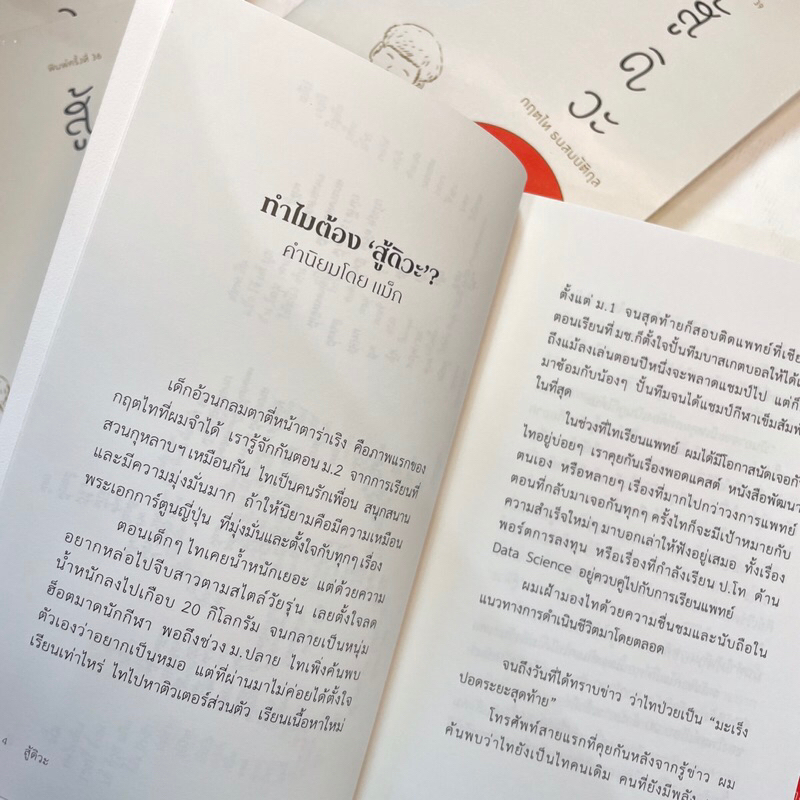 พิมพ์ครั้งที่ 36
สู้ดิวะ
กฤตไท ธนสมบัติกุล
ทำไมต้อง ‘สู้ดิวะ’?
คำนิยมโดย แม็ก
เด็กอ้วนกลมตาตี่หน้าตาร่าเริง คือภาพแรกของ
กฤตไทที่ผมจำได้ เรารู้จักกันตอน ม.2 จากการเรียนที่
สวนกุหลาบฯ เหมือนกัน ไทเป็นคนรักเพื่อน สนุกสนาน
และมีความมุ่งมั่นมาก ถ้าให้นิยามคือมีความเหมือน
พระเอกการ์ตูนญี่ปุ่น ที่มุ่งมั่นและตั้งใจกับทุกๆ เรื่อง
ตอนเด็กๆ ไทเคยน้ำหนักเยอะ แต่ด้วยความ
อยากหล่อไปจีบสาวตามสไตล์วัยรุ่น เลยตั้งใจลด
น้ำหนักลงไปเกือบ 20 กิโลกรัม จนกลายเป็นหนุ่ม
ฮ็อตมาดนักกีฬา พอถึงช่วง ม.ปลาย ไทเพิ่งค้นพบ
ตัวเองว่าอยากเป็นหมอ แต่ที่ผ่านมาไม่ค่อยได้ตั้งใจ
เรียนเท่าไหร่ ไทไปหาติวเตอร์ส่วนตัว เรียนเนื้อหาใหม่
4 สู้ดิวะ
ตั้งแต่ ม.1 จนสุดท้ายก็สอบติดแพทย์ที่เชีย
ตอนเรียนที่ มช.ก็ตั้งใจปั้นทีมบาสเกตบอลให้ได้
ถึงแม้ลงเล่นตอนปีหนึ่งจะพลาดแชมป์ไป แต่ก็
มาซ้อมกับน้องๆ ปั้นทีมจนได้แชมป์กีฬาเข็มสัมพั
ในที่สุด
ในช่วงที่ไทเรียนแพทย์ ผมได้มีโอกาสนัดเจอกั
ไทอยู่บ่อยๆ เราคุยกันเรื่องพอดแคสต์ หนังสือพัฒนา
ตนเอง หรือหลายๆ เรื่องที่มากไปกว่าวงการแพทย์
ตอนที่กลับมาเจอกันทุกๆ ครั้งไทก็จะมีเป้าหมายกับ
ความสำเร็จใหม่ๆ มาบอกเล่าให้ฟังอยู่เสมอ ทั้งเรื่อง
พอร์ตการลงทุน หรือเรื่องที่กำลังเรียน ป.โท ด้าน
Data Science อยู่ควบคู่ไปกับการเรียนแพทย์
ผมเฝ้ามองไทด้วยความชื่นชมและนับถือใน
แนวทางการดำเนินชีวิตมาโดยตลอด
จนถึงวันที่ได้ทราบข่าว ว่าไทป่วยเป็น “มะเร็ง
ปอดระยะสุดท้าย”
โทรศัพท์สายแรกที่คุยกันหลังจากรู้ข่าว ผม
ค้นพบว่าไทยังเป็นไทคนเดิม คนที่ยังมีพลัง